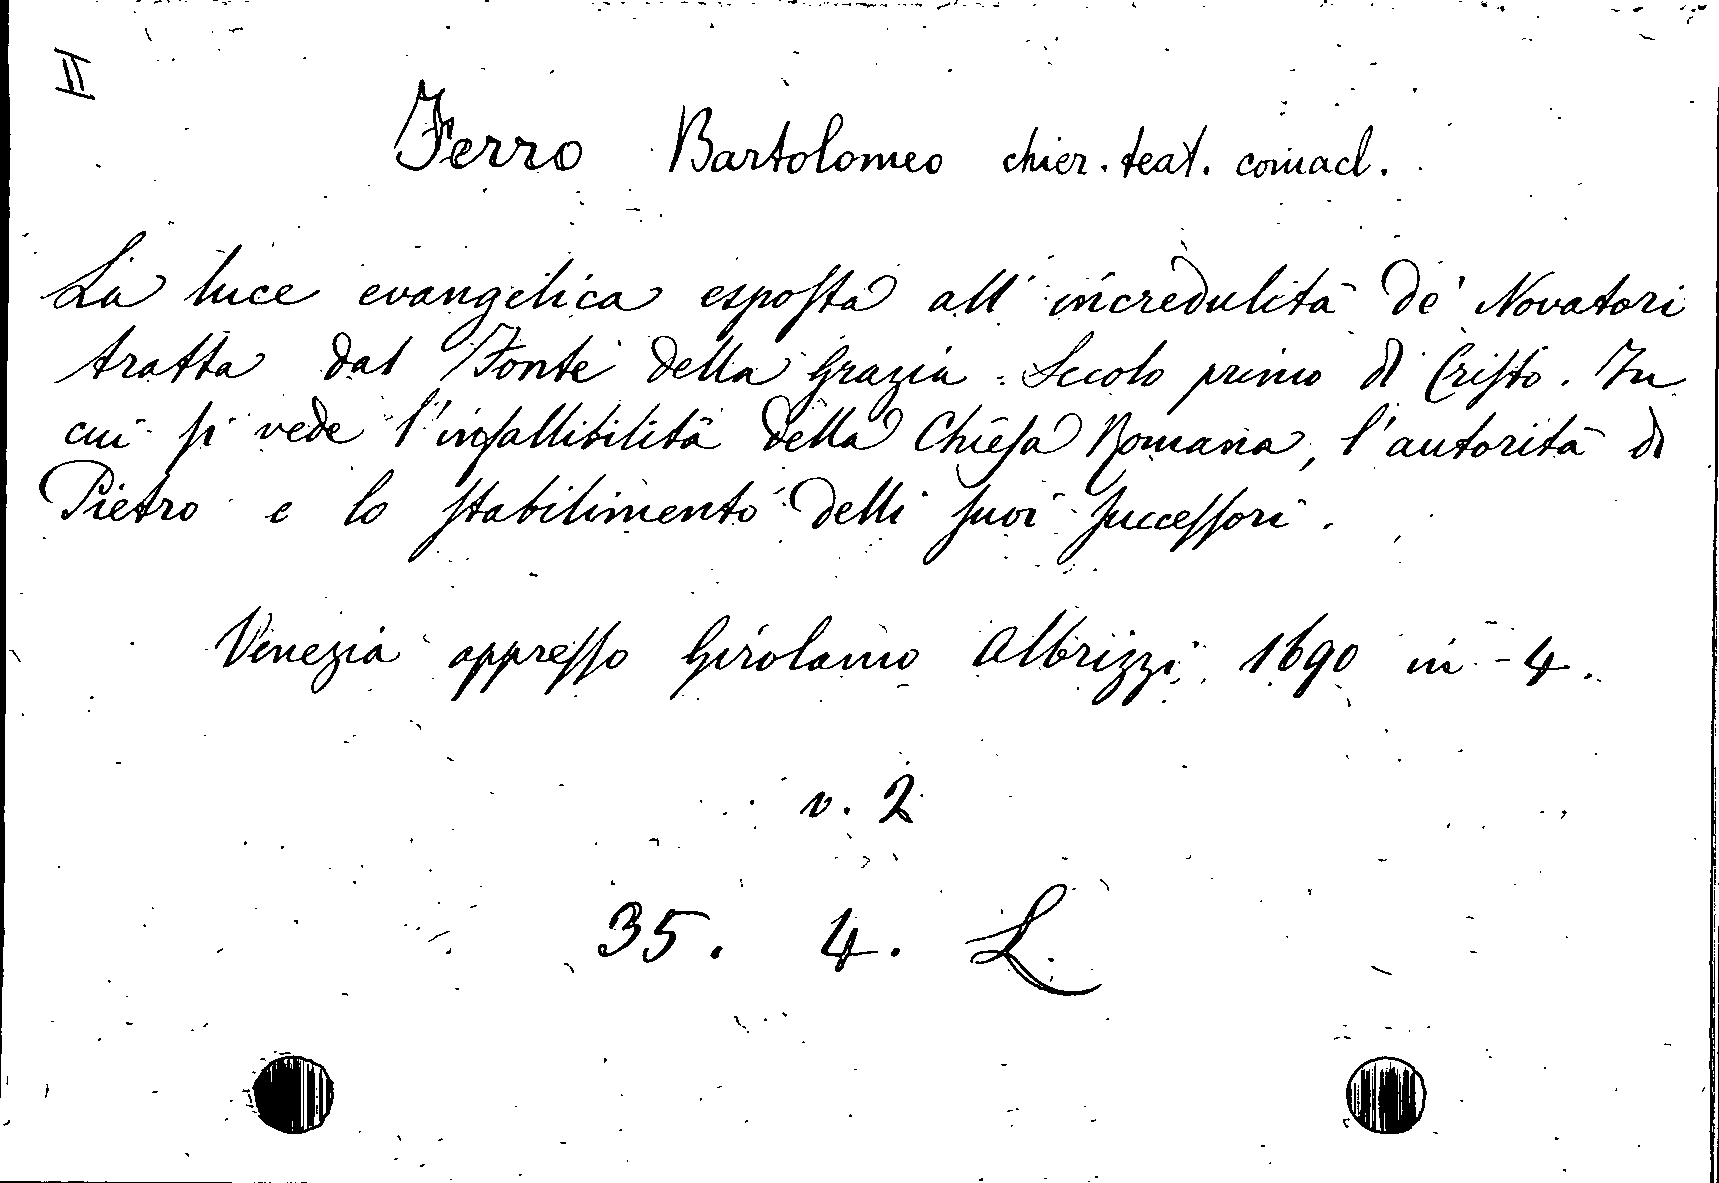 II
Ferro Bartolomeo chier. teat. comacl.
La luce evangelica espoſta all' incredulità de' Novatori
tratta dal Fonte della Grazia. Secolo primo di Criſto. In
cui ſi vede l'infallibilità della Chieſa Romana, l'autorità di
Pietro e lo ſtabilimento delli ſuoi ſucceſſori.
Venezia appreſſo Girolamo Albrizzi 1690 in-4.
v. 2
35. 4. L